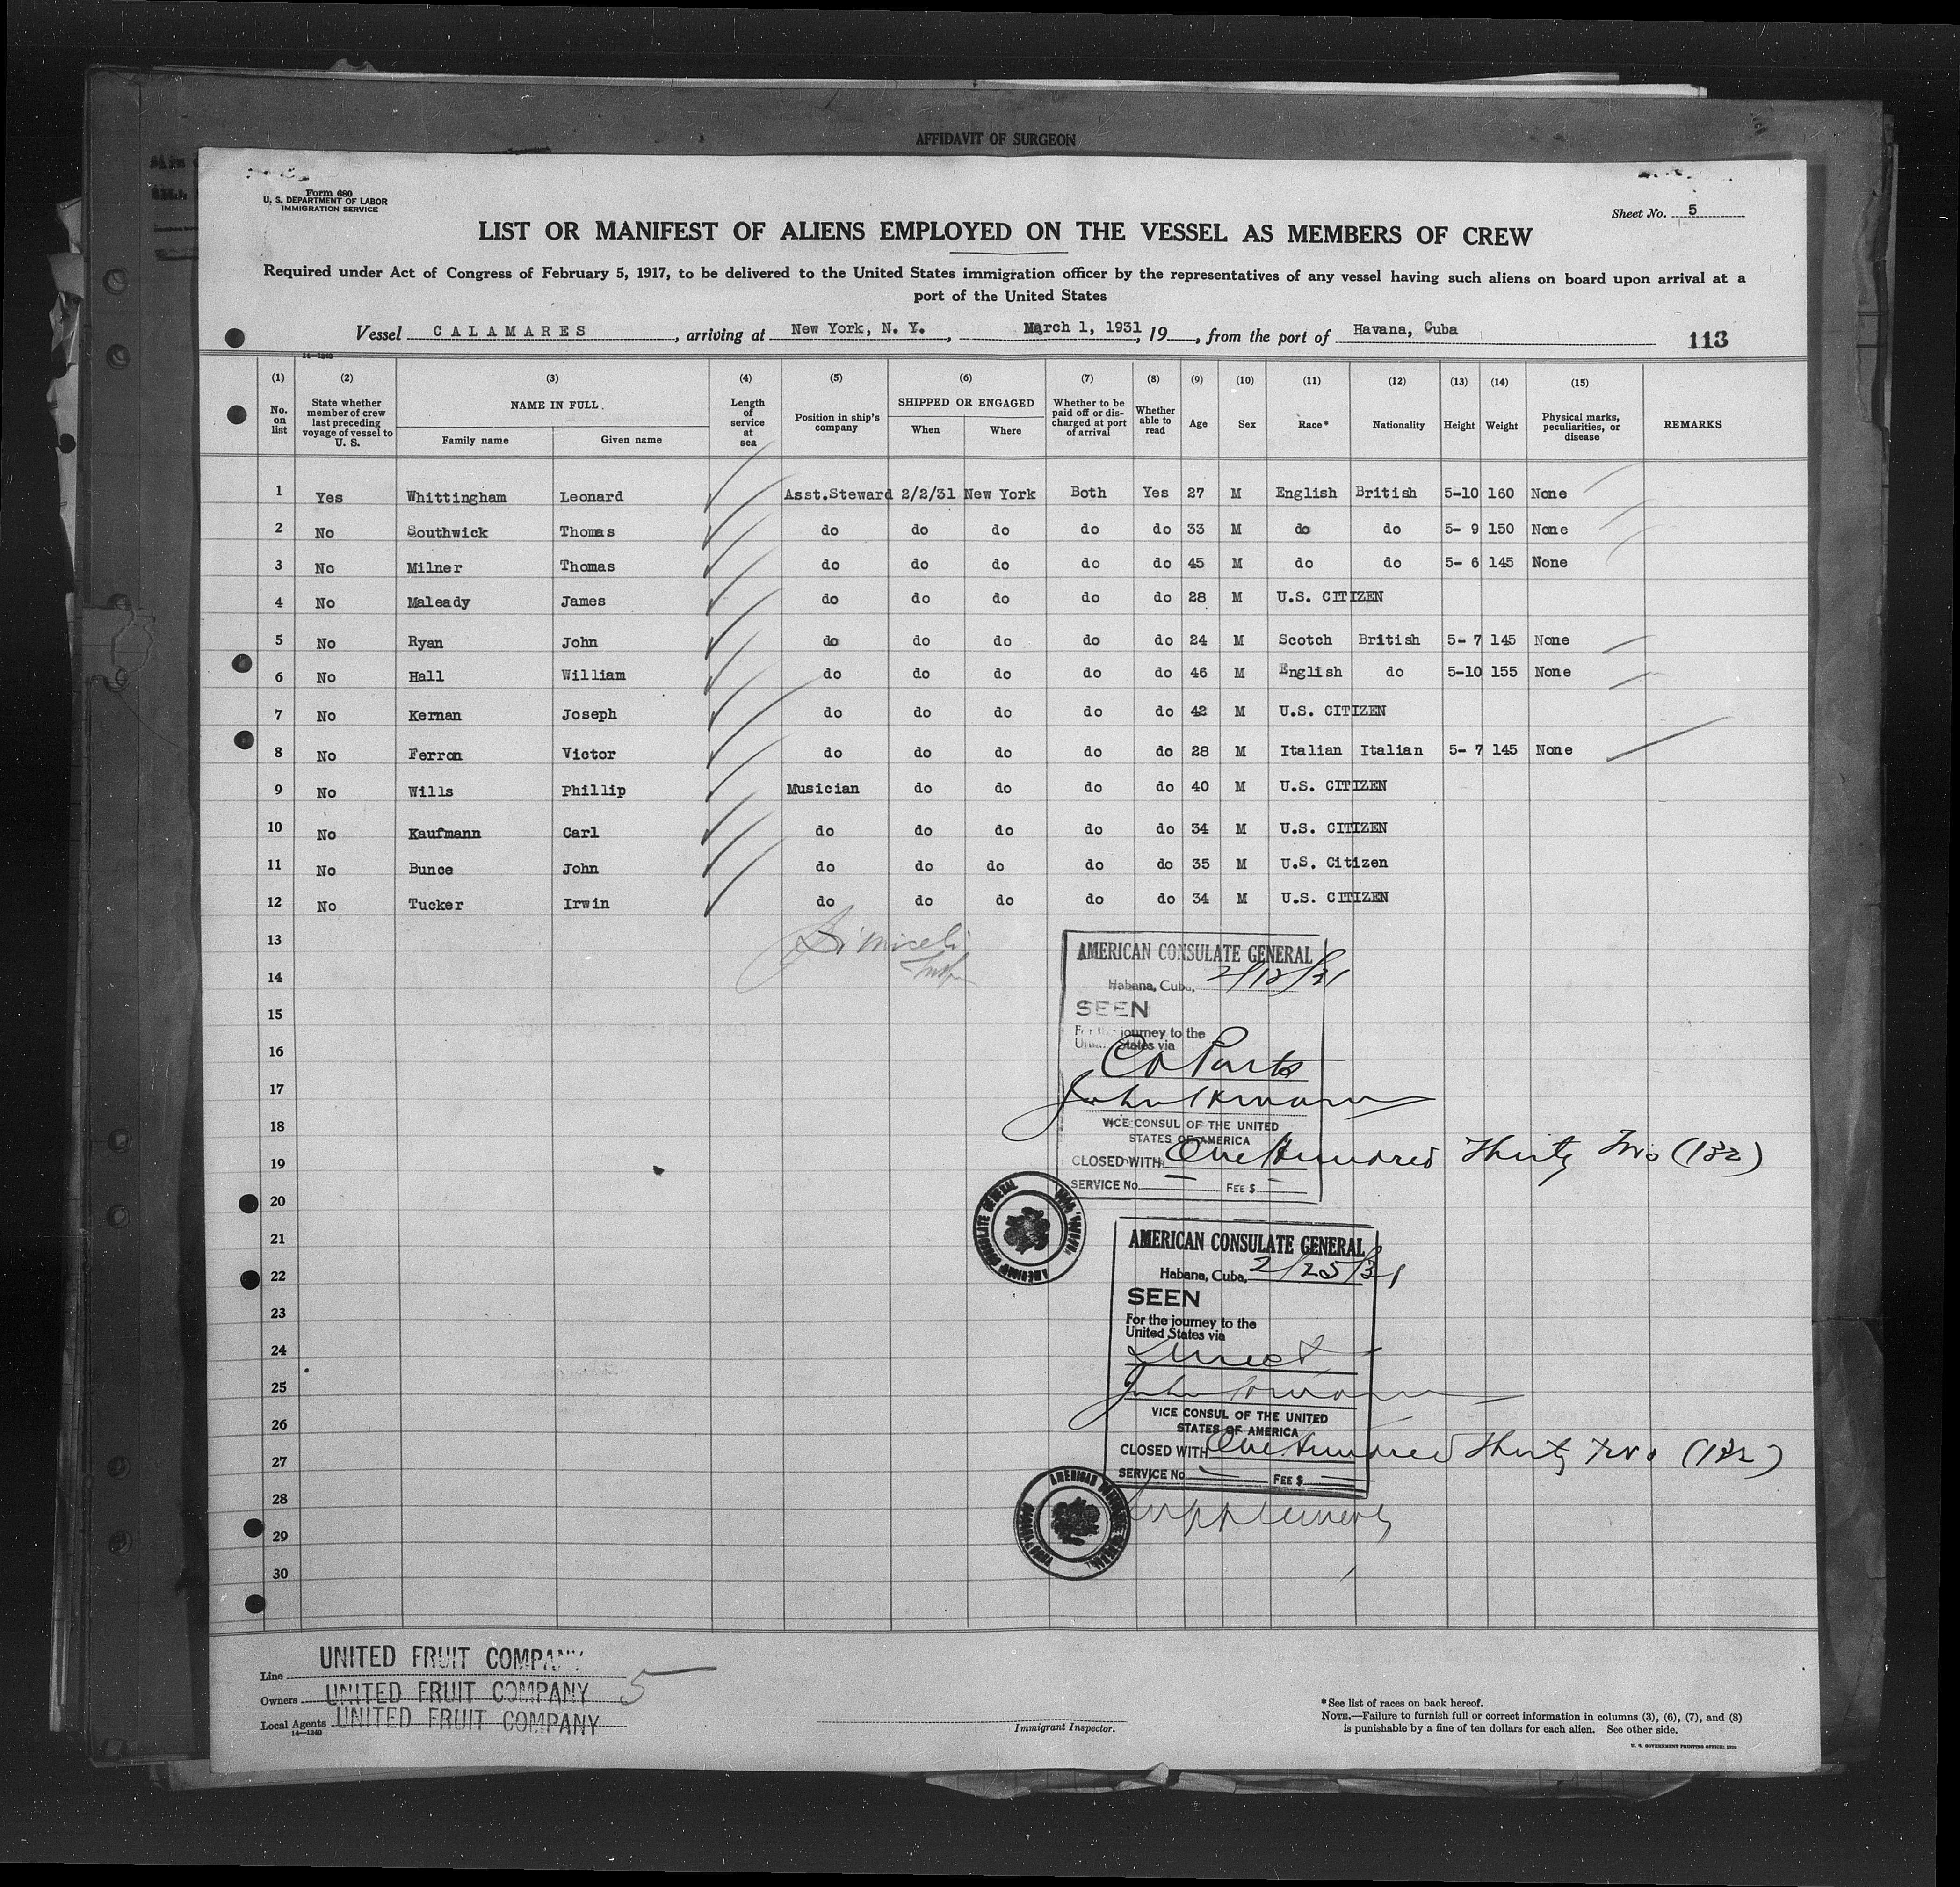 AFFIDAVIT OF SURGEON
Form 680
U. S. DEPARTMENT OF LABOR
IMMIGRATION SERVICE
Sheet No. 5
LIST OR MANIFEST OF ALIENS EMPLOYED ON THE VESSEL AS MEMBERS OF CREW
Required under Act of Congress of February 5, 1917, to be delivered to the United States immigration officer by the representatives of any vessel having such aliens on board upon arrival at a
port of the United States
Vessel CALAMARES, arriving at New York, N. Y., March 1, 1931, 19, from the port of Havana, Cuba 113
14—1240
(1) (2) (3) (4) (5) (6) (7) (8) (9) (10) (11) (12) (13) (14) (15)
No. on list State whether member of crew last preceding voyage of vessel to U. S. NAME IN FULL Family name Given name Length of service at sea Position in ship's company SHIPPED OR ENGAGED When Where Whether to be paid off or discharged at port of arrival Whether able to read Age Sex Race* Nationality Height Weight Physical marks, peculiarities, or disease REMARKS
1 Yes Whittingham Leonard Asst.Steward 2/2/31 New York Both Yes 27 M English British 5-10 160 None
2 No Southwick Thomas do do do do do 33 M do do 5- 9 150 None
3 No Milner Thomas do do do do do 45 M do do 5- 6 145 None
4 No Maleady James do do do do do 28 M U.S. CITIZEN
5 No Ryan John do do do do do 24 M Scotch British 5- 7 145 None
6 No Hall William do do do do do 46 M English do 5-10 155 None
7 No Kernan Joseph do do do do do 42 M U.S. CITIZEN
8 No Ferron Victor do do do do do 28 M Italian Italian 5- 7 145 None
9 No Wills Phillip Musician do do do do 40 M U.S. CITIZEN
10 No Kaufmann Carl do do do do do 34 M U.S. CITIZEN
11 No Bunce John do do do do do 35 M U.S. Citizen
12 No Tucker Irwin do do do do do 34 M U.S. CITIZEN
13
14
15
16
17
18
19
20
21
22
23
24
25
26
27
28
29
30
AMERICAN CONSULATE GENERAL
Habana, Cuba, 2/12/31
SEEN
For the journey to the
United States via
VICE CONSUL OF THE UNITED
STATES OF AMERICA
CLOSED WITH One Hundred Thirty Two (132)
SERVICE No. FEE $
AMERICAN CONSULATE GENERAL
Habana, Cuba, 2/25/31
SEEN
For the journey to the
United States via
Direct
VICE CONSUL OF THE UNITED
STATES OF AMERICA
CLOSED WITH One Hundred Thirty Two (132)
SERVICE No. FEE $
Line UNITED FRUIT COMPANY
Owners UNITED FRUIT COMPANY 5
Local Agents UNITED FRUIT COMPANY
14—1240
Immigrant Inspector.
*See list of races on back hereof.
NOTE.—Failure to furnish full or correct information in columns (3), (6), (7), and (8)
is punishable by a fine of ten dollars for each alien. See other side.